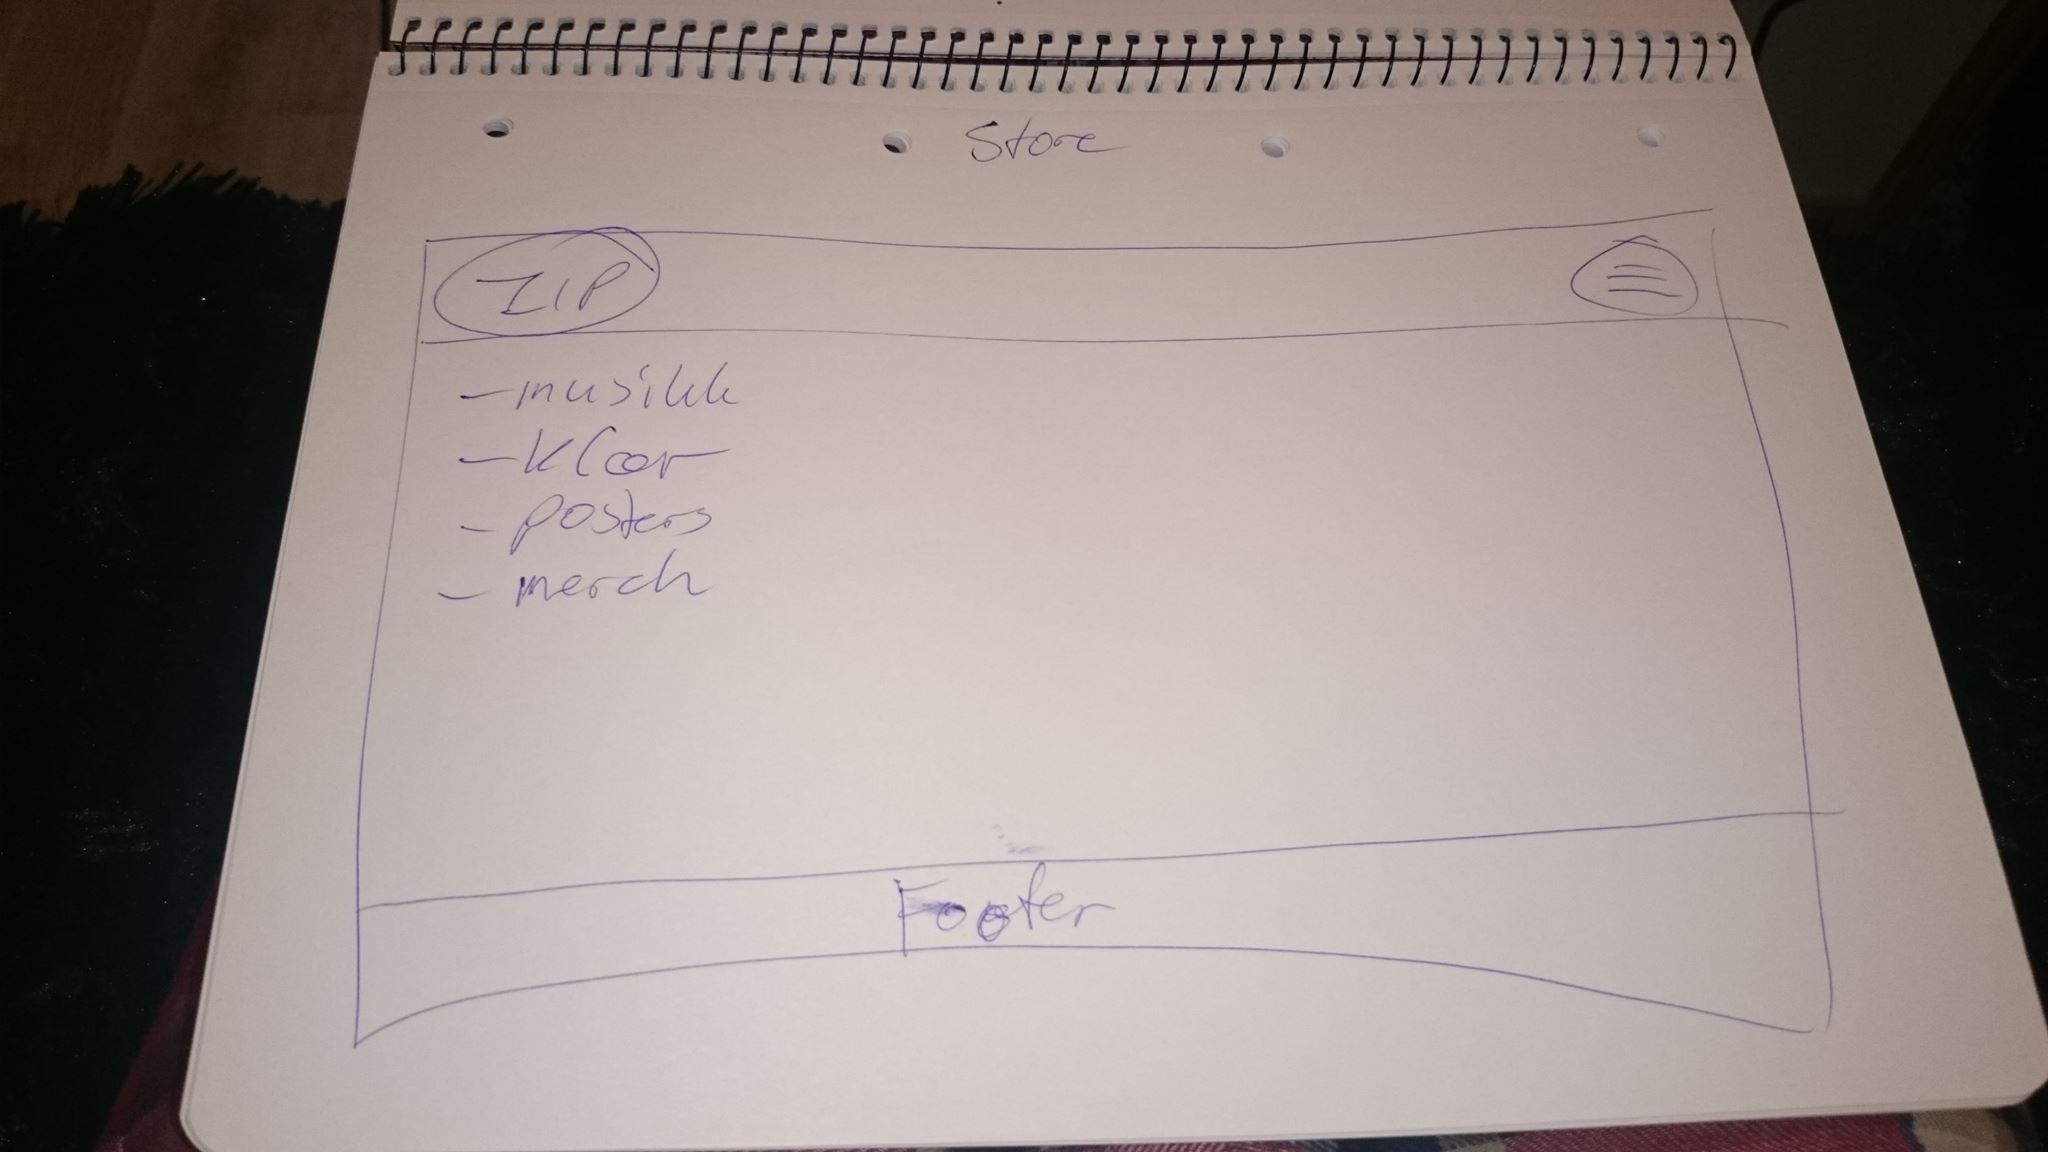 Store
ZIP
- musikk
- klær
- posters
- merch
Footer